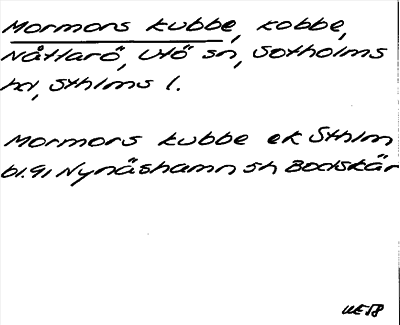 Mormors kubbe, kobbe,
Nåttarö, Utö sn, Sotholms
hd, Sthlms l.
Mormors kubbe ek Sthlm
bl.91 Nynäshamn sh Bodskär